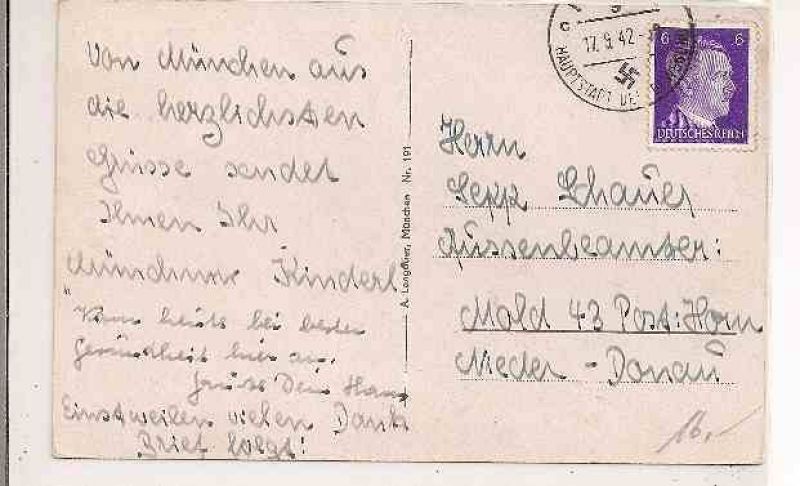 Von München aus
die herzlichsten
Grüsse sendet
Ihnen Ihr
Münchner Kinderl
heute bei bester
Gesundheit hier an.
Gruss Dein Hans
Einstweilen vielen Dank
Brief folgt!
A. Lengauer, München Nr. 191
17.9.42
HAUPTSTADT DER
6 6
DEUTSCHES REICH
Herrn
Sepp Schauer
Kassenbeamter:
Mold 43 Post: Horn
Nieder-Donau
16,-